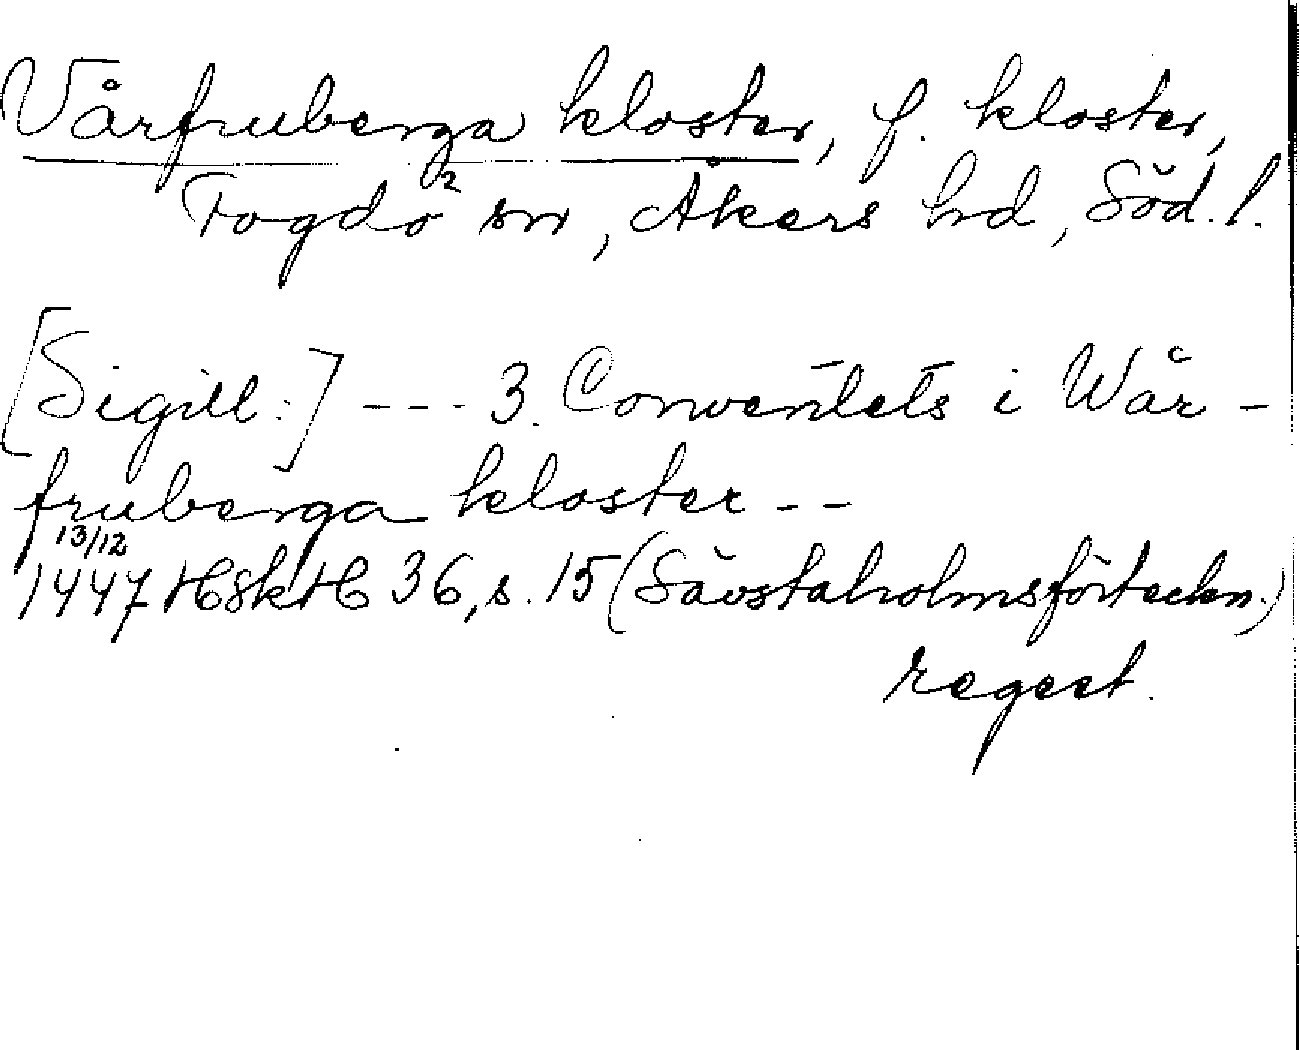 Vårfruberga kloster, f. kloster,
Fogdö sn, Åkers hd, Söd.l.
[Sigill:] --- 3. Conventets i Wår-
fruberga kloster --
13/12
1447 HSkH 36, s. 15 (Sävstaholmsförteckn.)
regest.